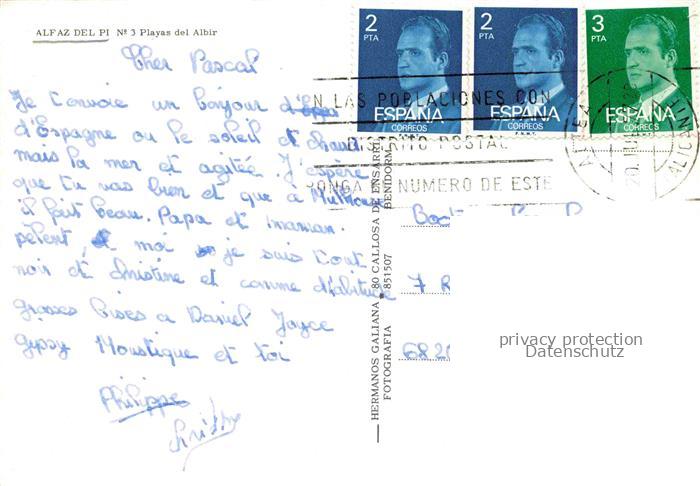 ALFAZ DEL PI Nº 3 Playas del Albir
Cher Pascal
Je t'envoie un bonjour
d'Espagne ou le soleil et chaud
mais la mer et agitée. J'espère
que tu vas bien et que à Mulhouse
il fait beau. Papa et maman
pèlent, et moi je suis tout
noir et Christine et comme d'habitude
grosses bises a Daniel Joyce
gipsy Moustique et toi
Philippe
2 PTA ESPAÑA CORREOS
2 PTA ESPAÑA CORREOS
3 PTA ESPAÑA CORREOS
EN LAS POBLACIONES CON
DISTRITO POSTAL
PONGA EL NUMERO DE ESTE
ALTEA
ALICANTE
HERMANOS GALIANA
FOTOGRAFIA
80 CALLOSA DE ENSARRIA
851507 BENIDORM
7 R
682
privacy protection
Datenschutz